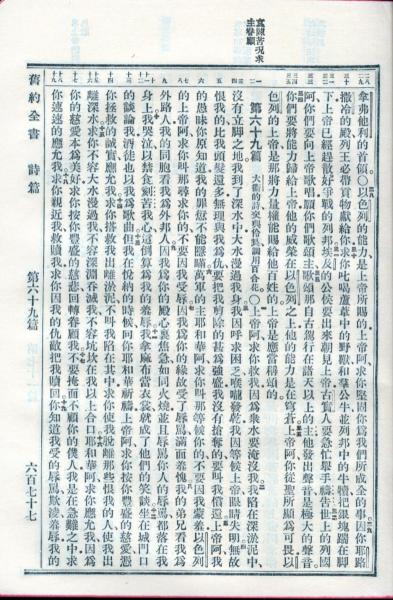 哀陳苦況求
主眷顧
拿弗他利的首領〇以色列的能力是上帝所賜的上帝阿求你堅固你為我們所成全的事因你耶路
撒冷的殿列王必帶貢物獻給你求你叱喝蘆葦中的野獸和羣公牛並列邦中的牛犢把銀塊踹在脚
下上帝已經趕散好爭戰的列邦埃及的公侯要出來朝見上帝古實人要急忙舉手禱告世上的列國
阿你們要向上帝歌唱願你們歌頌主歌頌那自古駕行在諸天以上的主他發出聲音是極大的聲音
你們要將能力歸給上帝他的威榮在以色列之上他的能力是在穹蒼上帝阿你從聖所顯為可畏以
色列的上帝是那將力量權能賜給他百姓的上帝是應當稱頌的
第六十九篇 大衛的詩交與伶長調用百合花〇上帝阿求你救我因為衆水要淹沒我我陷在深淤泥中
沒有立脚之地我到了深水中大水漫過我身我因呼求困乏喉嚨發乾我因等候上帝眼睛失明無故
恨我的比我頭髮還多無理與我為仇要把我剪除的甚為強盛我沒有搶奪的要叫我償還上帝阿我
的愚昧你原知道我的罪愆不能隱瞞萬軍的主耶和華阿求你叫那等候你的不要因我蒙羞以色列
的上帝阿求你叫那尋求你的不要因我受辱因我為你的緣故受了辱罵滿面羞愧我的弟兄看我為
外路人我的同胞看我為外邦人因我為你的殿心裏焦急如同火燒並且辱罵你人的辱罵都落在我
身上我哭泣以禁食刻苦我心這倒算為我的羞辱我拿麻布當衣裳就成了他們的笑談坐在城門口
的談論我酒徒也以我為歌曲但我在悅納的時候向你耶和華祈禱上帝阿求你按你豐盛的慈愛憑
你拯救的誠實應允我求你搭救我出離淤泥不叫我陷在其中求你使我脫離那些恨我的人使我出
離深水求你不容大水漫過我不容深淵吞滅我不容坑坎在我以上合口耶和華阿求你應允我因為
你的慈愛本為美好求你按你豐盛的慈悲回轉眷顧我不要掩面不顧你的僕人我是在急難之中求
你速速的應允我求你親近我救贖我求你因我的仇敵把我贖回你知道我受的辱罵欺凌羞辱我的
舊約全書 詩篇 第六十九篇 六百七十七